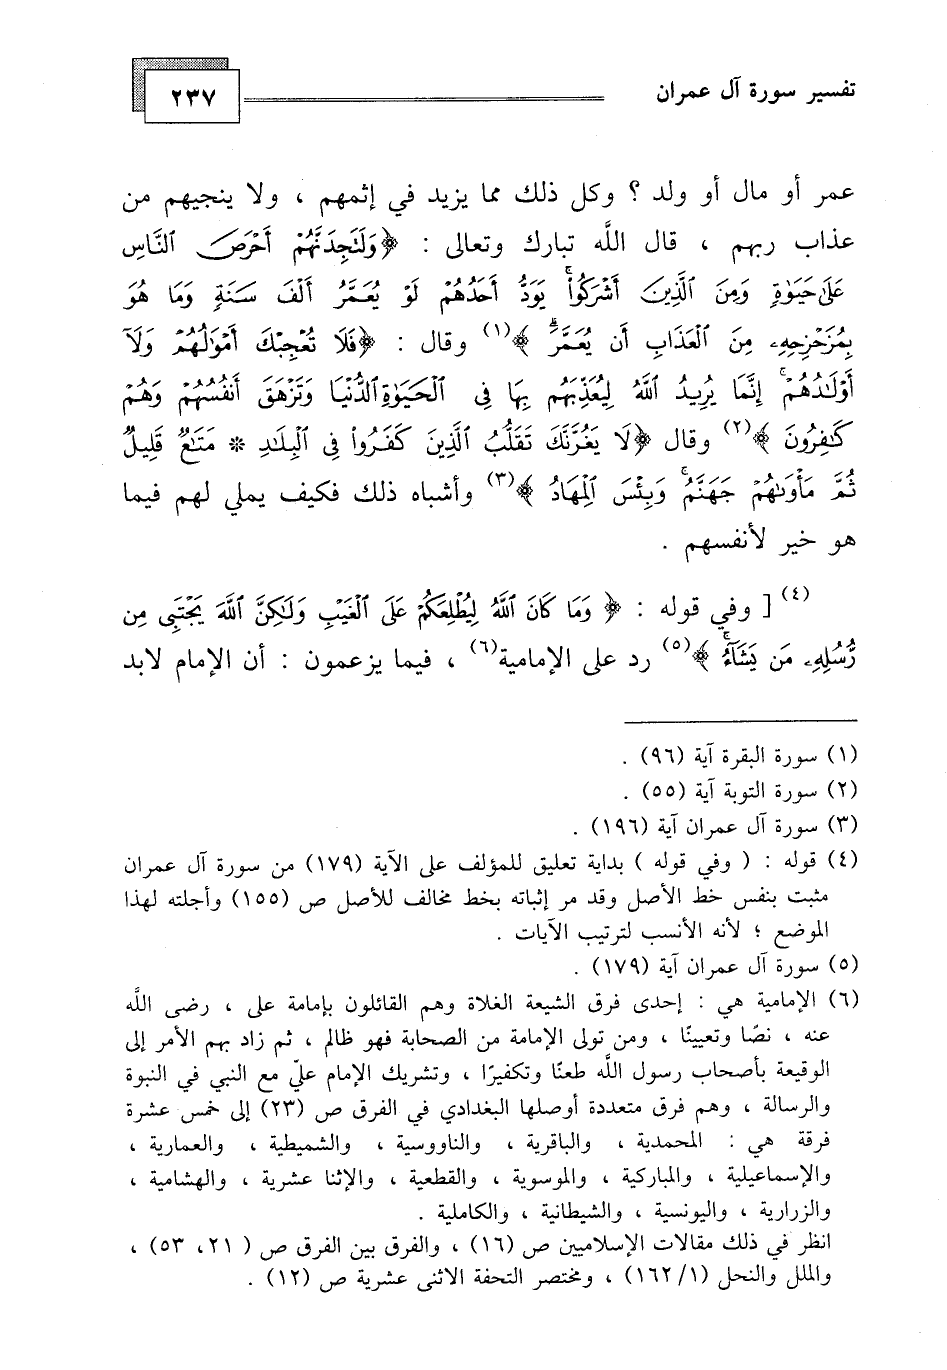 تفسير سورة آل عمران
٢٣٧
عمر أو مال أو ولد ؟ وكل ذلك مما يزيد في إثمهم ، ولا ينجيهم من
عذاب ربهم ، قال اللَّه تبارك وتعالى : ﴿وَلَنَجِدَنَّهُمْ أَحْرَصَ ٱلنَّاسِ
عَلَىٰ حَيَوٰةٍ وَمِنَ ٱلَّذِينَ أَشْرَكُوا۟ۚ يَوَدُّ أَحَدُهُمْ لَوْ يُعَمَّرُ أَلْفَ سَنَةٍ وَمَا هُوَ
بِمُزَحْزِحِهِۦ مِنَ ٱلْعَذَابِ أَن يُعَمَّرَۗ ﴾(١) وقال : ﴿فَلَا تُعْجِبْكَ أَمْوَٰلُهُمْ وَلَآ
أَوْلَـٰدُهُمْۚ إِنَّمَا يُرِيدُ ٱللَّهُ لِيُعَذِّبَهُم بِهَا فِى ٱلْحَيَوٰةِ ٱلدُّنْيَا وَتَزْهَقَ أَنفُسُهُمْ وَهُمْ
كَـٰفِرُونَ ﴾(٢) وقال ﴿لَا يَغُرَّنَّكَ تَقَلُّبُ ٱلَّذِينَ كَفَرُوا۟ فِى ٱلْبِلَـٰدِ * مَتَـٰعٌ قَلِيلٌ
ثُمَّ مَأْوَىٰهُمْ جَهَنَّمُۚ وَبِئْسَ ٱلْمِهَادُ ﴾(٣) وأشباه ذلك فكيف يملي لهم فيما
هو خير لأنفسهم .
(٤) [ وفي قوله : ﴿ وَمَا كَانَ ٱللَّهُ لِيُطْلِعَكُمْ عَلَى ٱلْغَيْبِ وَلَـٰكِنَّ ٱللَّهَ يَجْتَبِى مِن
رُّسُلِهِۦ مَن يَشَآءُۖ ﴾(٥) رد على الإمامية(٦) ، فيما يزعمون : أن الإمام لابد
(١) سورة البقرة آية (٩٦) .
(٢) سورة التوبة آية (٥٥) .
(٣) سورة آل عمران آية (١٩٦) .
(٤) قوله : ( وفي قوله ) بداية تعليق للمؤلف على الآية (١٧٩) من سورة آل عمران
مثبت بنفس خط الأصل وقد مر إثباته بخط مخالف للأصل ص (١٥٥) وأجلته لهذا
الموضع ؛ لأنه الأنسب لترتيب الآيات .
(٥) سورة آل عمران آية (١٧٩) .
(٦) الإمامية هي : إحدى فرق الشيعة الغلاة وهم القائلون بإمامة على ، رضى اللَّه
عنه ، نصًا وتعيينًا ، ومن تولى الإمامة من الصحابة فهو ظالم ، ثم زاد بهم الأمر إلى
الوقيعة بأصحاب رسول اللَّه طعنًا وتكفيرًا ، وتشريك الإمام عليّ مع النبي في النبوة
والرسالة ، وهم فرق متعددة أوصلها البغدادي في الفرق ص (٢٣) إلى خمس عشرة
فرقة هي : المحمدية ، والباقرية ، والناووسية ، والشميطية ، والعمارية ،
والإسماعيلية ، والمباركية ، والموسوية ، والقطعية ، والإثنا عشرية ، والهشامية ،
والزرارية ، واليونسية ، والشيطانية ، والكاملية .
انظر في ذلك مقالات الإسلاميين ص (١٦) ، والفرق بين الفرق ص ( ٢١، ٥٣) ،
والملل والنحل (١/ ١٦٢) ، ومختصر التحفة الاثنى عشرية ص (١٢) .